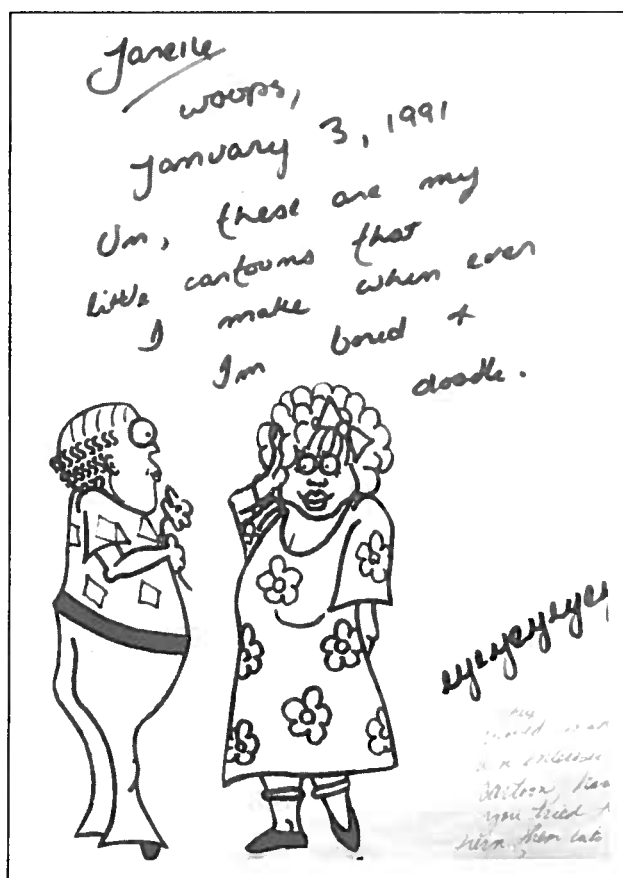 Janelle
woops,
January 3, 1991
Um, these are my
little cartoons that
I make when ever
I'm bored +
doodle.
eyeyeyeyey
cartoon,
you tried
them